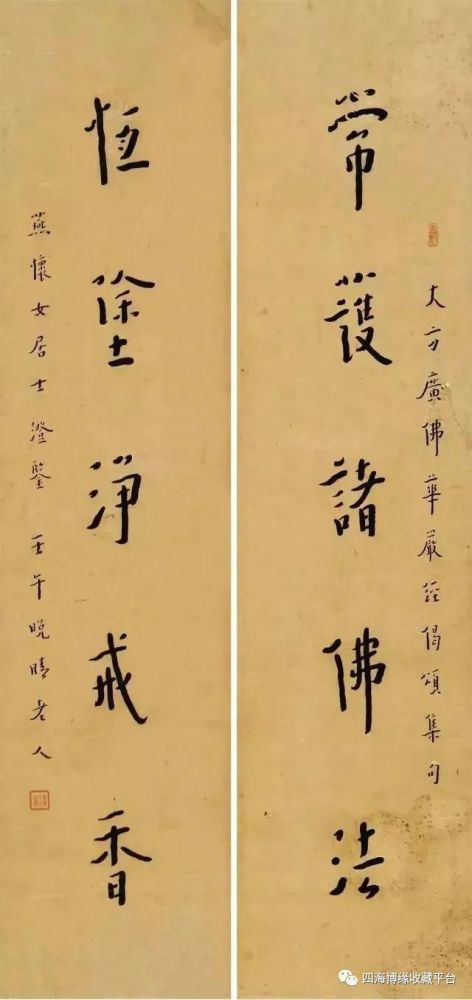 大方廣佛華嚴經偈頌集句
常護諸佛法
恆塗淨戒香
燕懷女居士澄鑒 壬午晚晴老人
四海博缘收藏平台